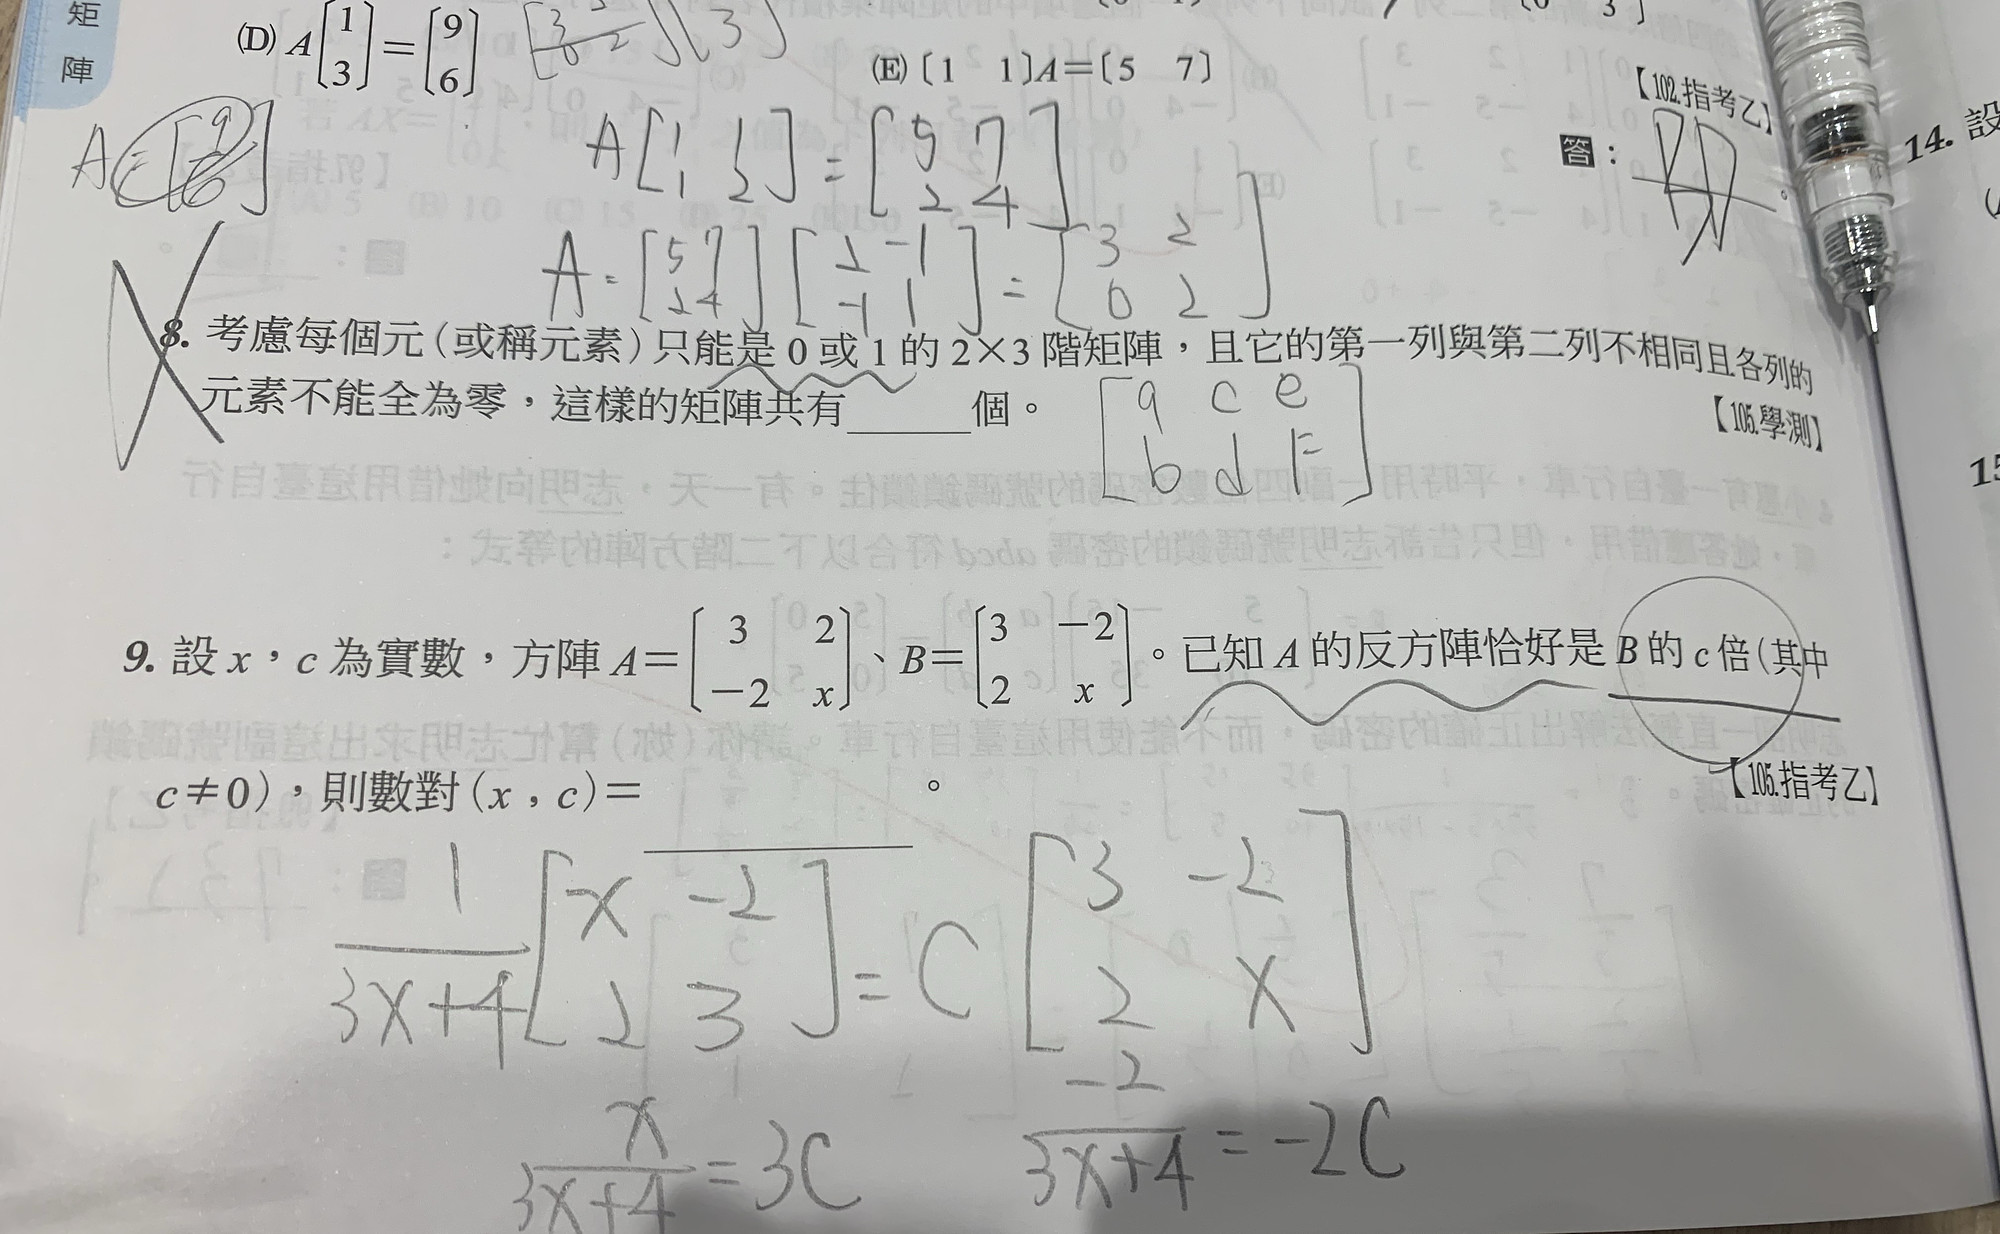 矩
陣
(D) A[1 3]=[9 6]
(E) [1 1]A=[5 7]
【102.指考乙】
答：
A
A[1 1 1 2] = [5 7 2 4]
A = [5 7 2 4][2 -1 -1 1] = [3 2 0 2]
8. 考慮每個元(或稱元素)只能是0或1的2×3階矩陣，且它的第一列與第二列不相同且各列的
元素不能全為零，這樣的矩陣共有______個。
【105.學測】
[a c e
b d F]
9. 設x，c為實數，方陣A=[3 2 -2 x]、B=[3 -2 2 x]。已知A的反方陣恰好是B的c倍(其中
c≠0)，則數對(x，c)=______。
【105.指考乙】
1/3x+4 [x -2 2 3] = C [3 -2 2 x]
x/3x+4 = 3C
-2/3x+4 = -2C
14. 設
15